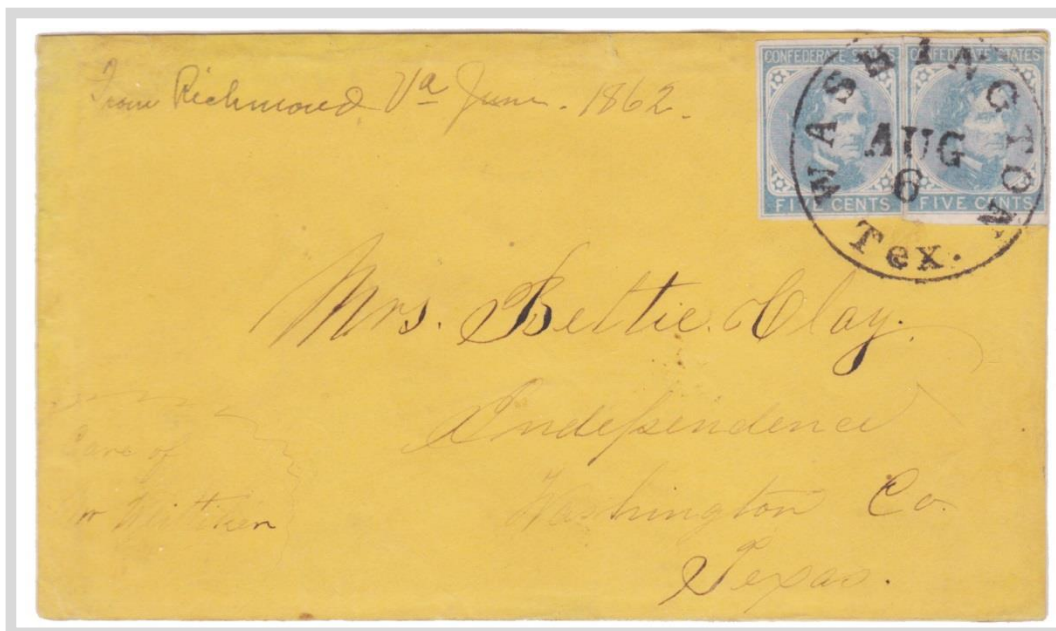 From Richmond Va June. 1862.
CONFEDERATE STATES
CONFEDERATE STATES
FIVE CENTS
FIVE CENTS
WASHINGTON
AUG
6
Tex.
Mrs. Bettie Clay.
Independence
Washington Co.
Texas.
Care of